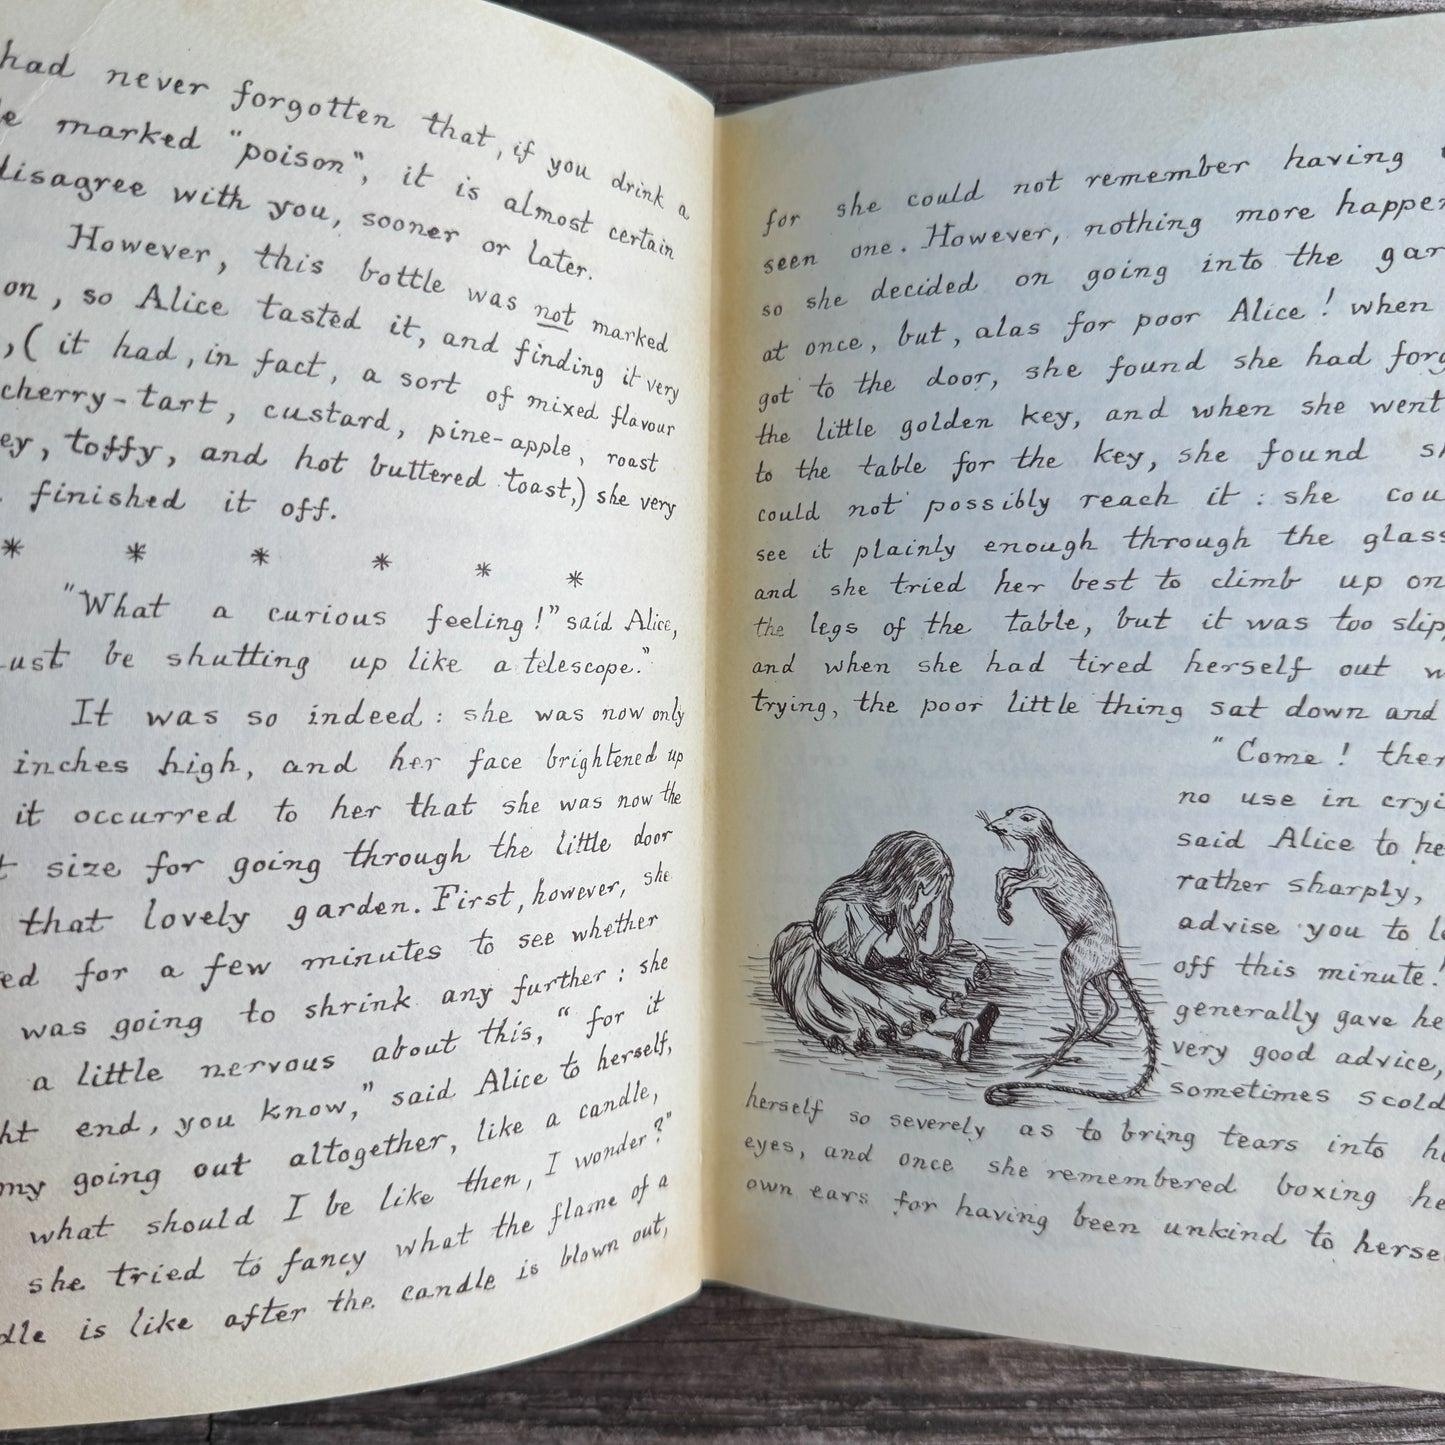 had never forgotten that, if you drink a
marked "poison", it is almost certain
disagree with you, sooner or later.
However, this bottle was not marked
on, so Alice tasted it, and finding it very
,( it had, in fact, a sort of mixed flavour
cherry-tart, custard, pine-apple, roast
ey, toffy, and hot buttered toast,) she very
finished it off.
* * * * * *
"What a curious feeling!" said Alice,
ust be shutting up like a telescope."
It was so indeed: she was now only
inches high, and her face brightened up
it occurred to her that she was now the
t size for going through the little door
that lovely garden. First, however, she
ed for a few minutes to see whether
was going to shrink any further: she
a little nervous about this, "for it
ht end, you know," said Alice to herself,
my going out altogether, like a candle,
what should I be like then, I wonder?"
she tried to fancy what the flame of a
dle is like after the candle is blown out,
for she could not remember having
seen one. However, nothing more happen
so she decided on going into the gar
at once, but, alas for poor Alice! when
got to the door, she found she had forg
the little golden key, and when she went
to the table for the key, she found sh
could not possibly reach it: she cou
see it plainly enough through the glass
and she tried her best to climb up on
the legs of the table, but it was too slip
and when she had tired herself out w
trying, the poor little thing sat down and
"Come! ther
no use in cryi
said Alice to he
rather sharply,
advise you to le
off this minute!
generally gave he
very good advice,
sometimes scold
herself so severely as to bring tears into h
eyes, and once she remembered boxing he
own ears for having been unkind to herse